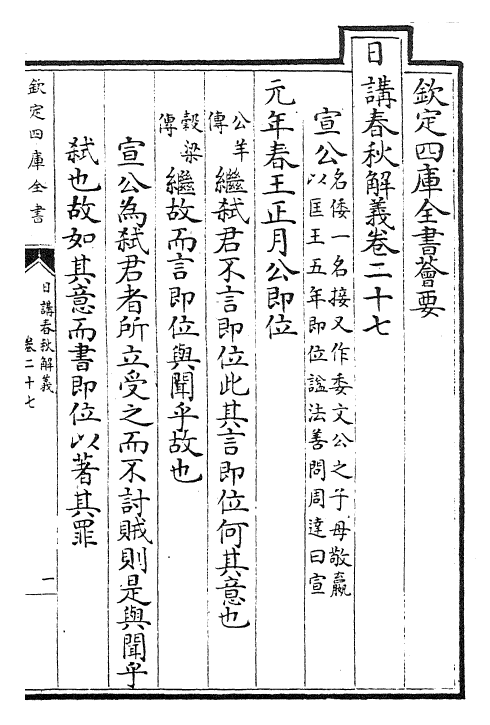 欽定四庫全書薈要
日講春秋解義卷二十七
宣公名倭一名接又作委文公之子母敬嬴
以匡王五年即位諡法善問周達曰宣
元年春王正月公即位
公羊傳繼弒君不言即位此其言即位何其意也
穀梁傳繼故而言即位與聞乎故也
宣公為弒君者所立受之而不討賊則是與聞乎
弒也故如其意而書即位以著其罪
欽定四庫全書
日講春秋解義
卷二十七
一